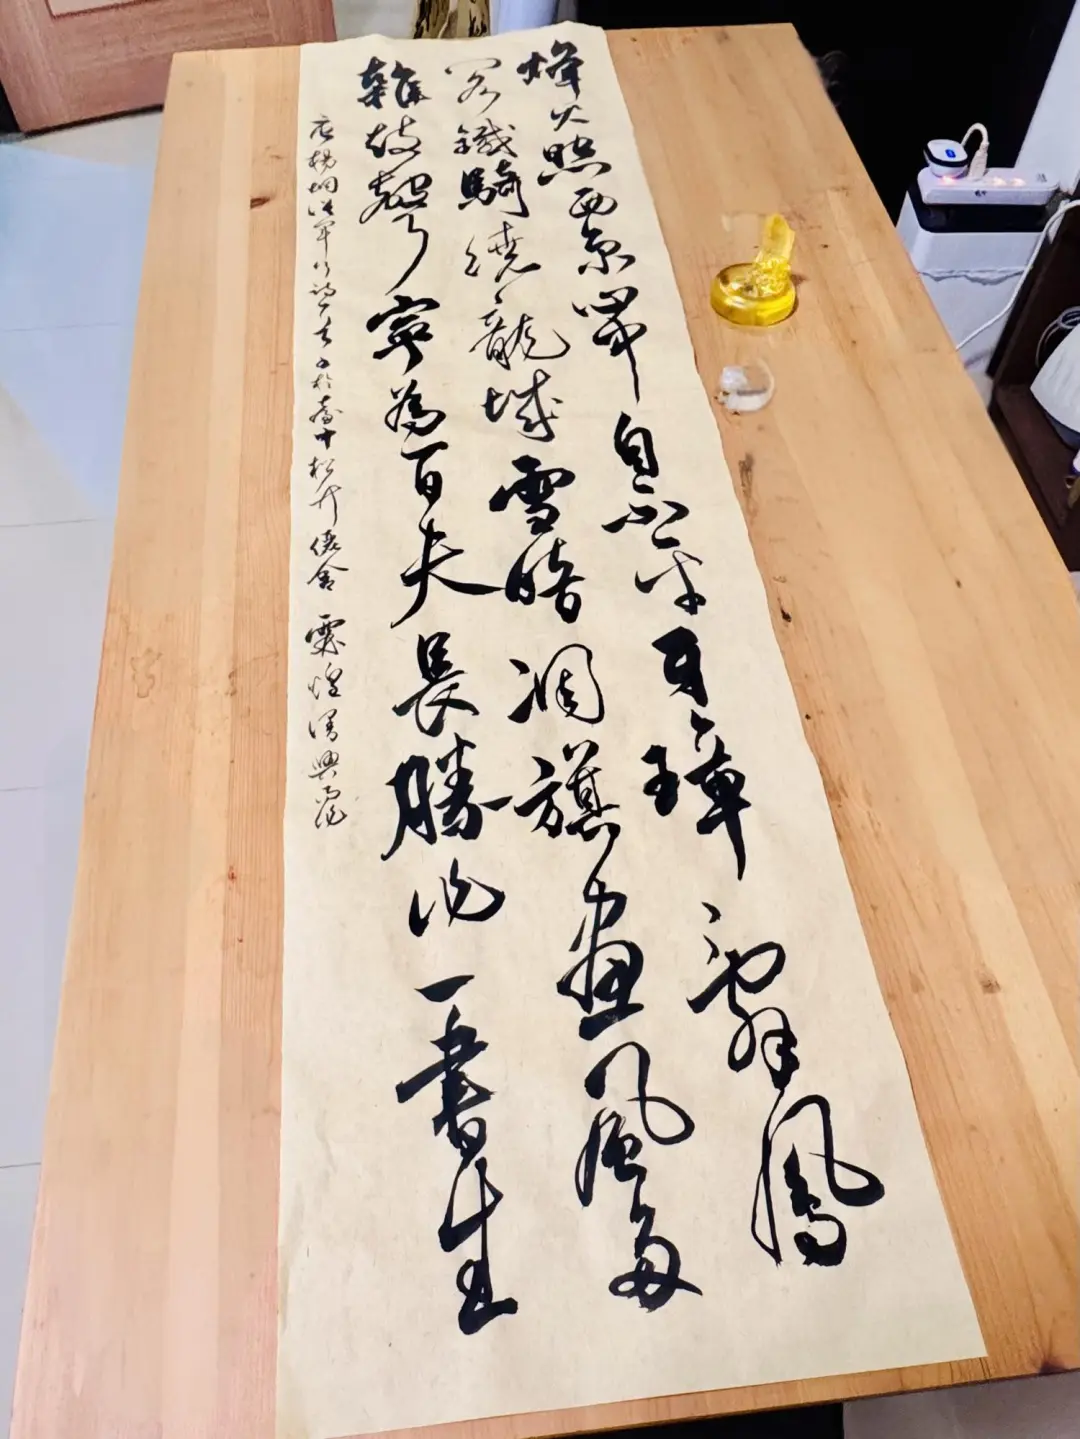 烽火照西京心中自不平牙璋辭鳳
闕鐵騎繞龍城雪暗凋旗畫風多
雜鼓聲寧為百夫長勝作一書生
唐楊炯從軍行詩一首 松竹 舍 煌 興